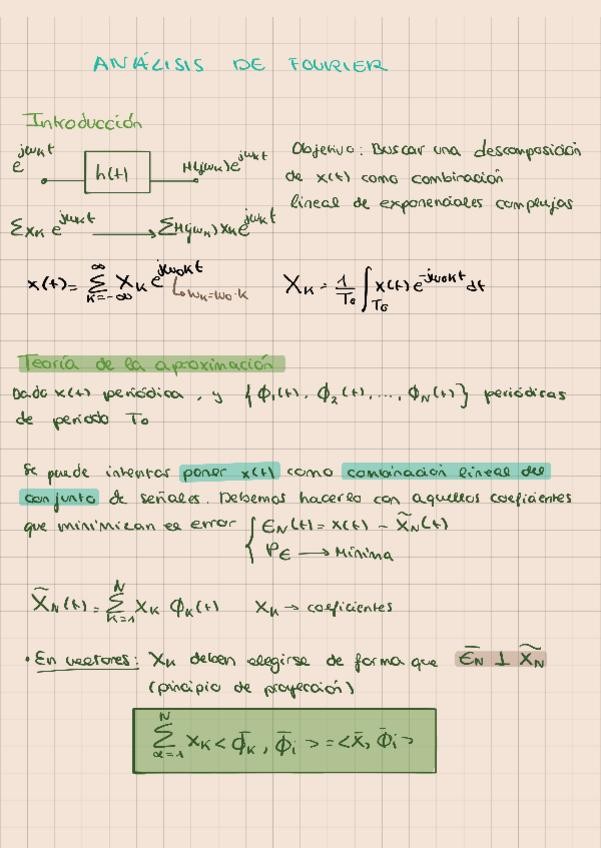 ANÁLISIS DE FOURIER
Introducción
e^{jωkt} h(t) H(jωk)e^{jωkt}
Objetivo: Buscar una descomposición
de x(t) como combinación
lineal de exponenciales complejas
Σ Xk e^{jωkt} → Σ H(jωk) Xk e^{jωkt}
x(t) = Σ_{k=-∞}^{∞} Xk e^{jω0kt} ↳ ωk=ω0·k
Xk = 1/T0 ∫_{T0} x(t) e^{-jω0kt} dt
Teoría de la aproximación
Dada x(t) periódica, y {ϕ1(t), ϕ2(t), ..., ϕN(t)} periódicas
de periodo T0
Se puede intentar poner x(t) como combinación lineal del
conjunto de señales. Debemos hacerlo con aquellos coeficientes
que minimizan el error { ϵN(t) = x(t) - x̃N(t)
Pϵ → Mínima
x̃N(t) = Σ_{k=1}^{N} Xk ϕk(t) Xk → coeficientes
• En vectores: Xk deben elegirse de forma que ϵ̄N ⊥ x̃N
(principio de proyección)
Σ_{α=1}^{N} Xk < ϕ̄k, ϕ̄i > = < x̄, ϕ̄i >